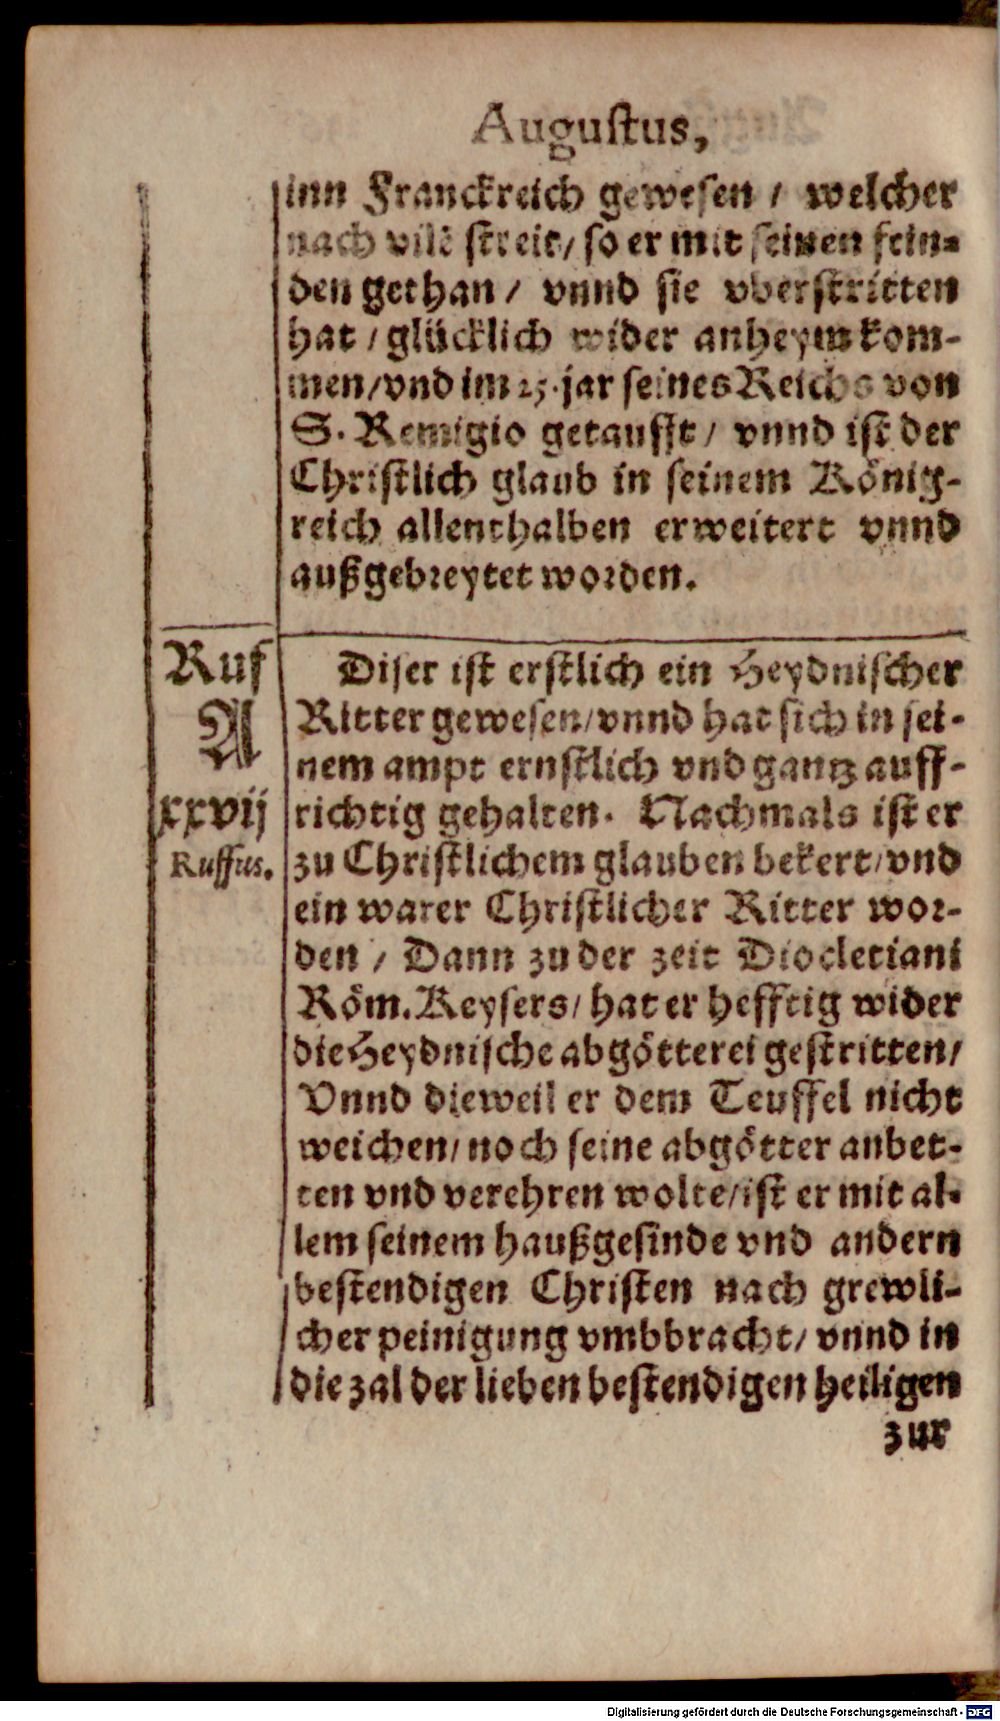 Augustus,
inn Franckreich gewesen / welcher
nach vilē streit / so er mit seinen fein-
den gethan / vnnd sie vberstritten
hat / glücklich wider anheym kom-
men / vnd im 25. jar seines Reichs von
S. Remigio getaufft / vnnd ist der
Christlich glaub in seinem König-
reich allenthalben erweitert vnnd
außgebreytet worden.
Ruf
A
xxvij
Ruffus.
Diser ist erstlich ein Heydnischer
Ritter gewesen / vnnd hat sich in sei-
nem ampt ernstlich vnd gantz auff-
richtig gehalten. Nachmals ist er
zu Christlichem glauben bekert / vnd
ein warer Christlicher Ritter wor-
den / Dann zu der zeit Diocletiani
Röm. Keysers / hat er hefftig wider
die Heydnische abgötterei gestritten /
Vnnd dieweil er dem Teuffel nicht
weichen / noch seine abgötter anbet-
ten vnd verehren wolte / ist er mit al-
lem seinem haußgesinde vnd andern
bestendigen Christen nach grewli-
cher peinigung vmbbracht / vnnd in
die zal der lieben bestendigen heiligen
zur
Digitalisierung gefördert durch die Deutsche Forschungsgemeinschaft - DFG